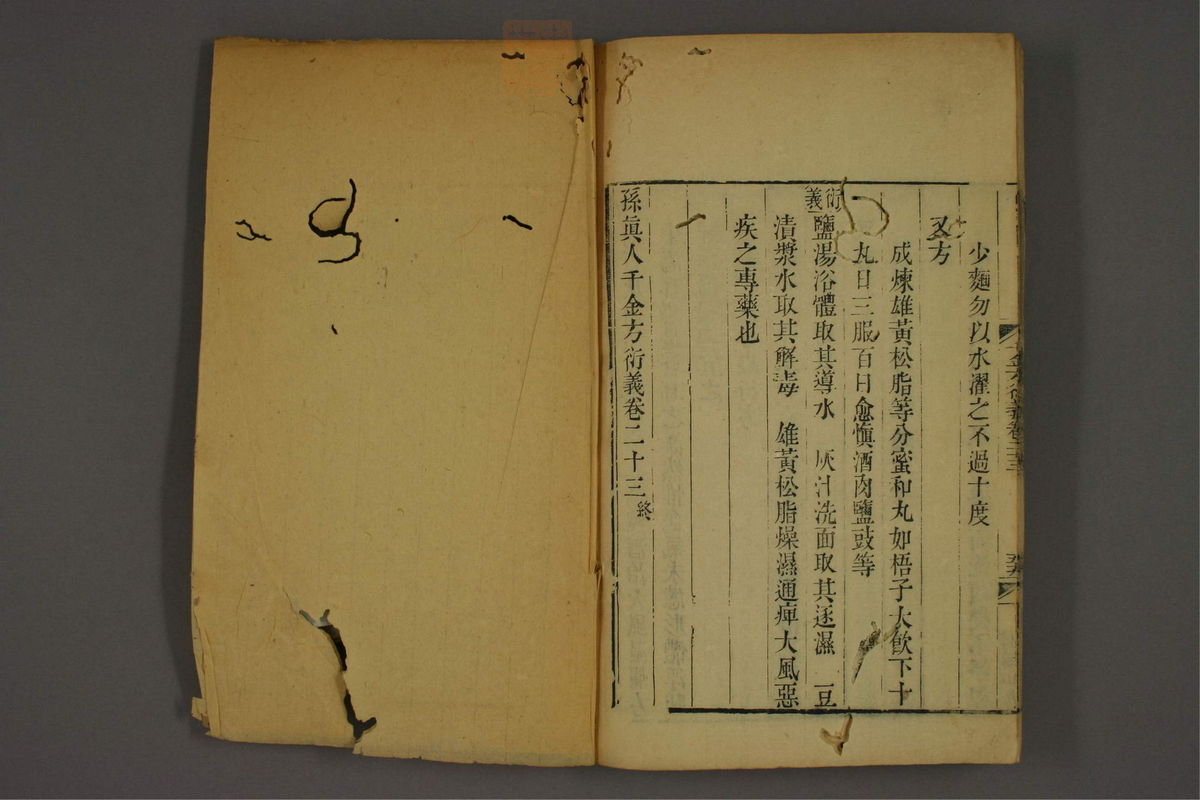 少麵勿以水濯之不過十度
又方
成煉雄黃松脂等分蜜和丸如梧子大飲下十
丸日三服百日愈慎酒肉鹽豉等
衍義鹽湯浴體取其導水　灰汁洗面取其逐濕　豆
漬漿水取其解毒　雄黃松脂燥濕通痺大風惡
疾之專藥也
孫眞人千金方衍義卷二十三終